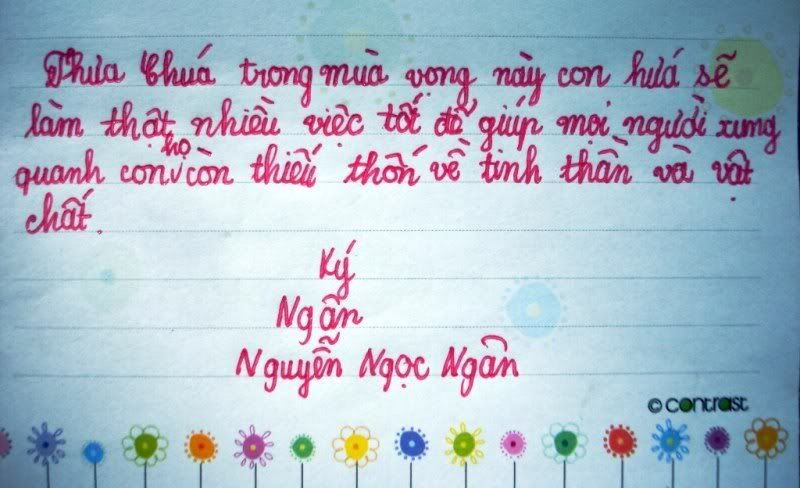 Thưa Chuá trong muà vọng này con huá sẽ
làm thật nhiều việc tốt để giúp mọi người xung
quanh con họ còn thiếu thốn về tinh thần và vật
chất.
Ký
Ngân
Nguyễn Ngọc Ngân
© contrast